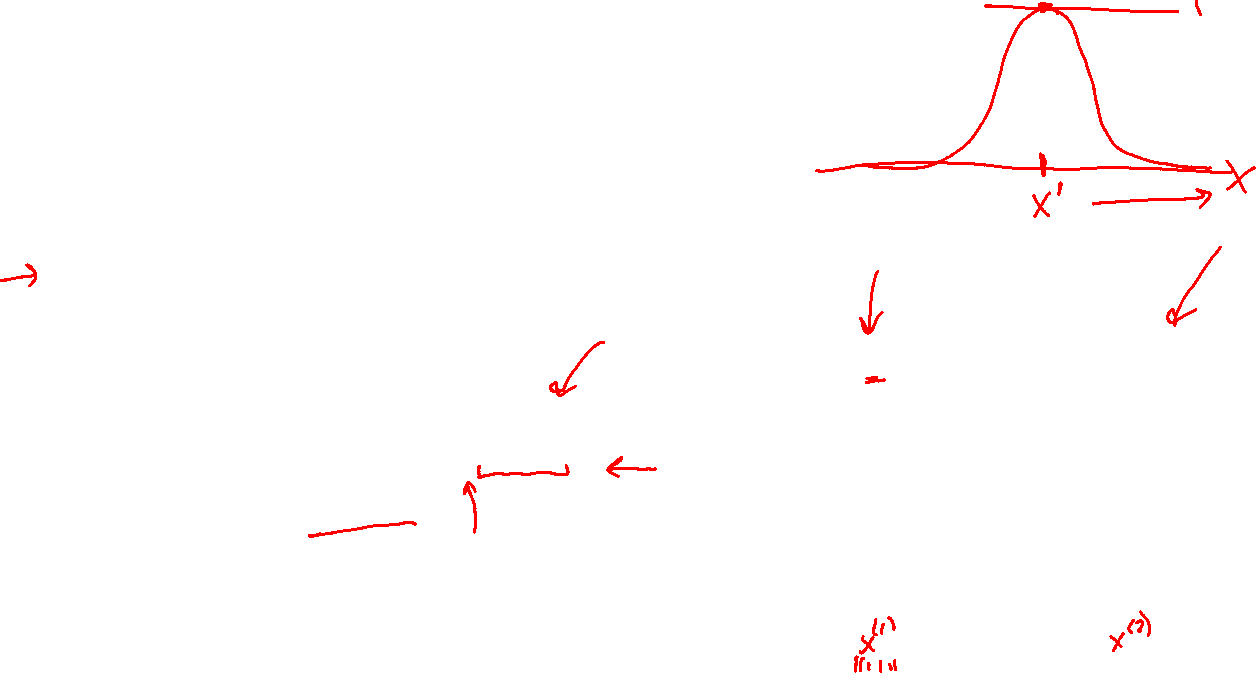 X
x'
x^(1) x^(2)